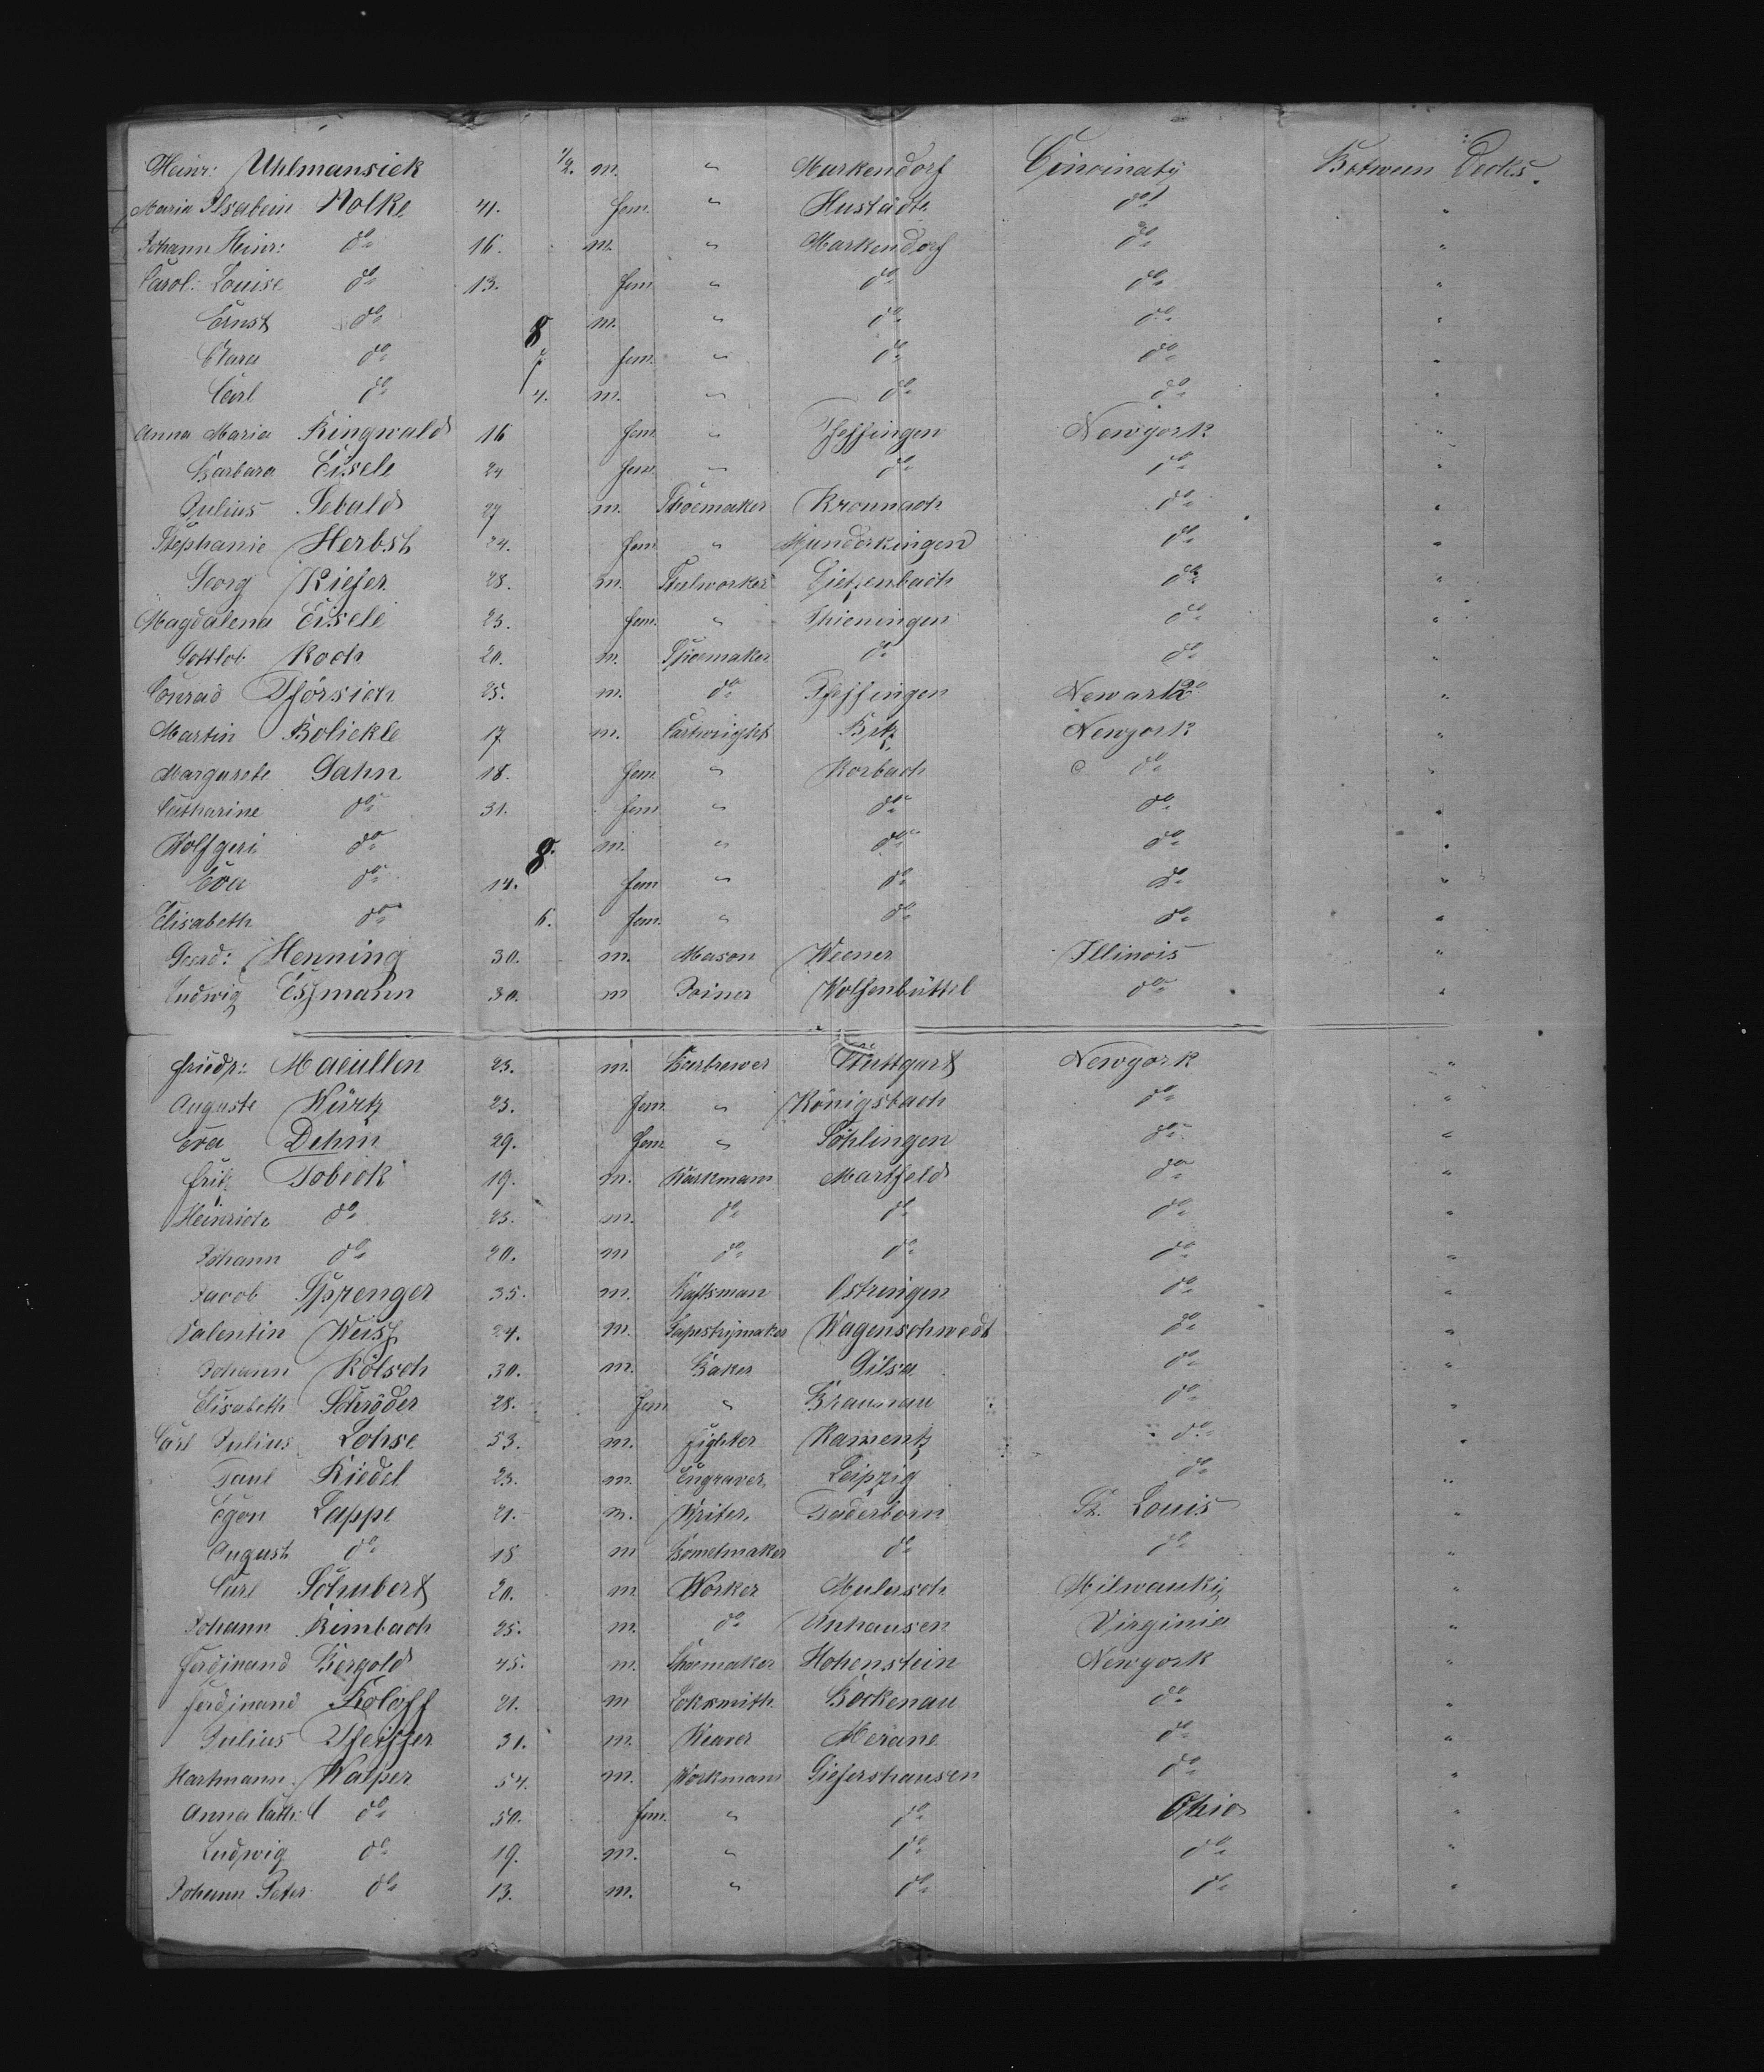 Heinr: Uhlmansiek 1/2. m. " Markendorf Cincinaty Between Decks.
Maria Ilsabein Nolke 41. fem. " Hustädte do "
Johann Heinr: do 16. m. " Markendorf do "
Carol: Louise do 13. fem " do do "
Ernst do 8 m. " do do "
Clara do 7 fem. " do do "
Carl do 4. m. " do do "
Anna Maria Ringwald 16 fem " Pfeffingen Newyork "
Barbara Eisele 24 fem " do do "
Julius Sebald 27 m. Shoemaker Kronnach do "
Stephanie Herbst 24. fem " Munderkingen do "
Georg Kiefer 28. m. Dietzenbach do "
Magdalena Eisele 23. fem. " Thieningen do "
Gottlob Koch 20. m. Shoemaker do do "
Conrad Pförsich 25. m. do Pfeffingen Newark "
Martin Bolickle 17 m. Cartwright Newyork "
Margarete Gahn 18. fem " Korbach do "
Catharine do 31. fem " do do "
Wolfgeri do 8. m. " do do "
Eva do 14. fem " do do "
Elisabeth do 6. fem. " do do "
Gerd: Henning 30. m. Mason Weener Illinois "
Ludwig Eszmann 30. m Joiner Wolfenbüttel do "
Friedr: 23. m. Stuttgart Newyork "
Auguste Würtz 23. fem " Königsbach do "
Eva Dehm 29. fem " Söhlingen do "
Fritz Tobeck 19. m. Workmann Martfeld do "
Heinrich do 23. m. do do do "
Johann do 20. m do do do "
Jacob Sprenger 35. m. Raftsman Ostringen do "
Valentin Weisz 24. m. Tapestrymaker Wagenschwedt do "
Johann Kölsch 30. m. Baker Dilsa do "
Elisabeth Schröder 28. fem " Braunau do "
Carl Julius Lohse 53. m. Kamentz do "
Paul Riedel 23. m. Engraver Leipzig do "
Egon Lappe 21. m. Writer Paderborn St. Louis "
August do 15 m do do "
Carl Schubert 20. m Worker Milwauky "
Johann Rimbach 25. m. do Anhausen Virginia "
Ferdinand Bergold 45. m. Shoemaker Hohenstein Newyork "
Ferdinand Koloff 21. m Loksmith Böckenau do "
Julius Pfeiffer 31. m. Weaver Merane do "
Hartmann Walper 54. m. Workmann Giefershausen do "
Anna Cath: do 50. fem. " do Ohio "
Ludwig do 19. m. " do do "
Johann Peter do 13. m. " do do "